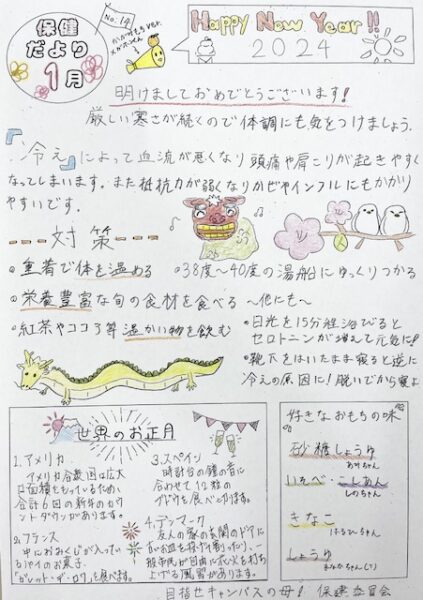 保健
だより
1月
No.14
Happy New Year!!
2024
明けましておめでとうございます!
厳しい寒さが続くので体調にも気をつけましょう.
『冷え』によって血流が悪くなり頭痛や肩こりが起きやすく
なってしまいます。また抵抗力が弱くなりかぜやインフルにもかかり
やすいです。
対策
重着で体を温める
・38度〜40度の湯船にゆっくりつかる
栄養豊富な旬の食材を食べる
〜他にも〜
紅茶やココア等温かい物を飲む
・日光を15分程浴びると
セロトニンが増えて元気に!
・靴下をはいたまま寝ると逆に
冷えの原因に!脱いでから寝よ
世界のお正月
1.アメリカ
アメリカ合衆国は広大
な面積をもっているため、
合計6回の新年のカウ
ントダウンがあります。
2.フランス
中におみくじが入ってい
るパイのお菓子
「ガレット・デ・ロワ」を食べます。
3.スペイン
時計台の鐘の音に
合わせて12粒の
ブドウを食べます。
4.デンマーク
友人の家の玄関のドアに
お皿を投げて割ったり、一
般市民が自由に花火を打ち
上げる風習があります。
好きなおもちの味
砂糖しょうゆ
いそべ・こしあん
きなこ
はるひちゃん
しょうゆ
目指せキャンパスの母! 保健委員会